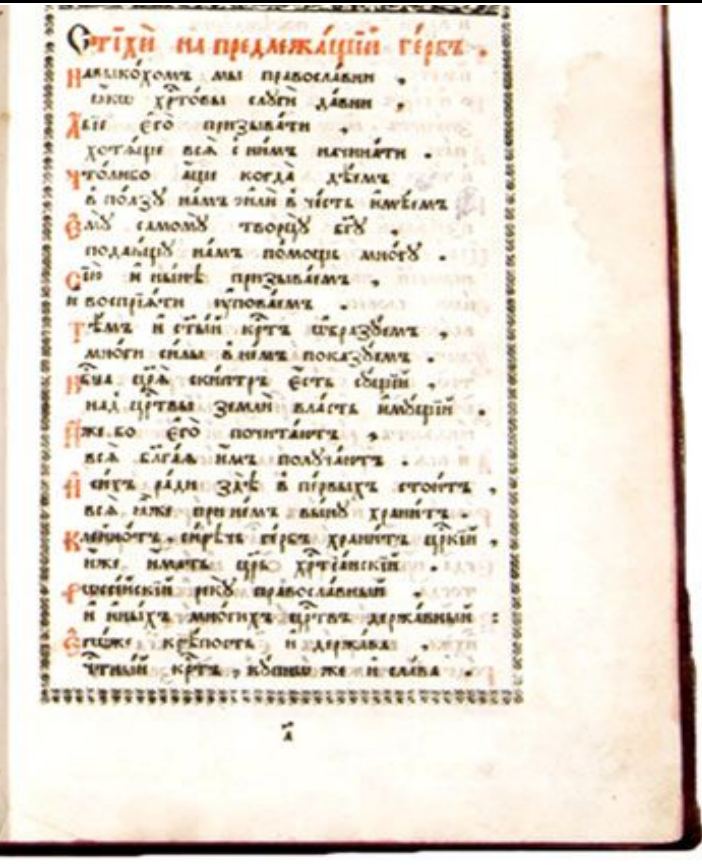 Стїхѝ на предлежа́щїй ге́рбъ .
Навыко́хомъ мы православни ,
ꙗ҆́кѡ хрⷭ҇то́вы слꙋги̑ да́вни ,
А҆́бїе є҆го̀ призыва́ти ,
хотѧ́ще всѧ̑ с ни́мъ начина́ти .
Что́либо а҆́ще когда̀ дѣ́емъ
в по́лзꙋ на́мъ и҆лѝ в че́сть и҆мѣ́емъ
Є҆мꙋ̀ самомꙋ̀ творцꙋ̀ бг҃ꙋ .
подаю́щꙋ на́мъ по́мощь мно́гꙋ .
Сїю̀ и҆ ны́нѣ призыва́емъ ,
и воспрїѧ́ти ᲂу҆пова́емъ .
Тѣ́мъ и҆ ст҃ы́й крⷭ҇тъ ѡ҆бразꙋ́емъ ,
мно́ги си́лы в не́мъ показꙋ́емъ .
скѵ́птръ є҆́сть сꙋ́щїй ,
над црⷭ҇твы землѝ вла́сть и҆мꙋ́щїй .
И҆́же бо є҆го̀ почита́ютъ ,
всѧ̑ бл҃га́ѧ и҆́мъ полꙋча́ютъ .
И҆ си́хъ ра́ди здѣ̀ в пе́рвыхъ стои́тъ ,
всѧ̑ ꙗ҆̀же при не́мъ вы́нꙋ храни́тъ .
Клейно́тъ си́рѣчь ге́рбъ храни́тъ цр҃кїй ,
и҆́же и҆́мать цр҃ь хрⷭ҇тїа́нскїй .
Рѡссі́йскїй рекꙋ̀ правосла́вный
и҆ и҆ны́хъ мно́гихъ црⷭ҇твъ держа́вный :
Є҆гѡ́же крѣ́пость и҆ держа́ва ,
чⷭ҇тны́й крⷭ҇тъ , кꙋ́пнѡ же и҆ сла́ва .
а҃